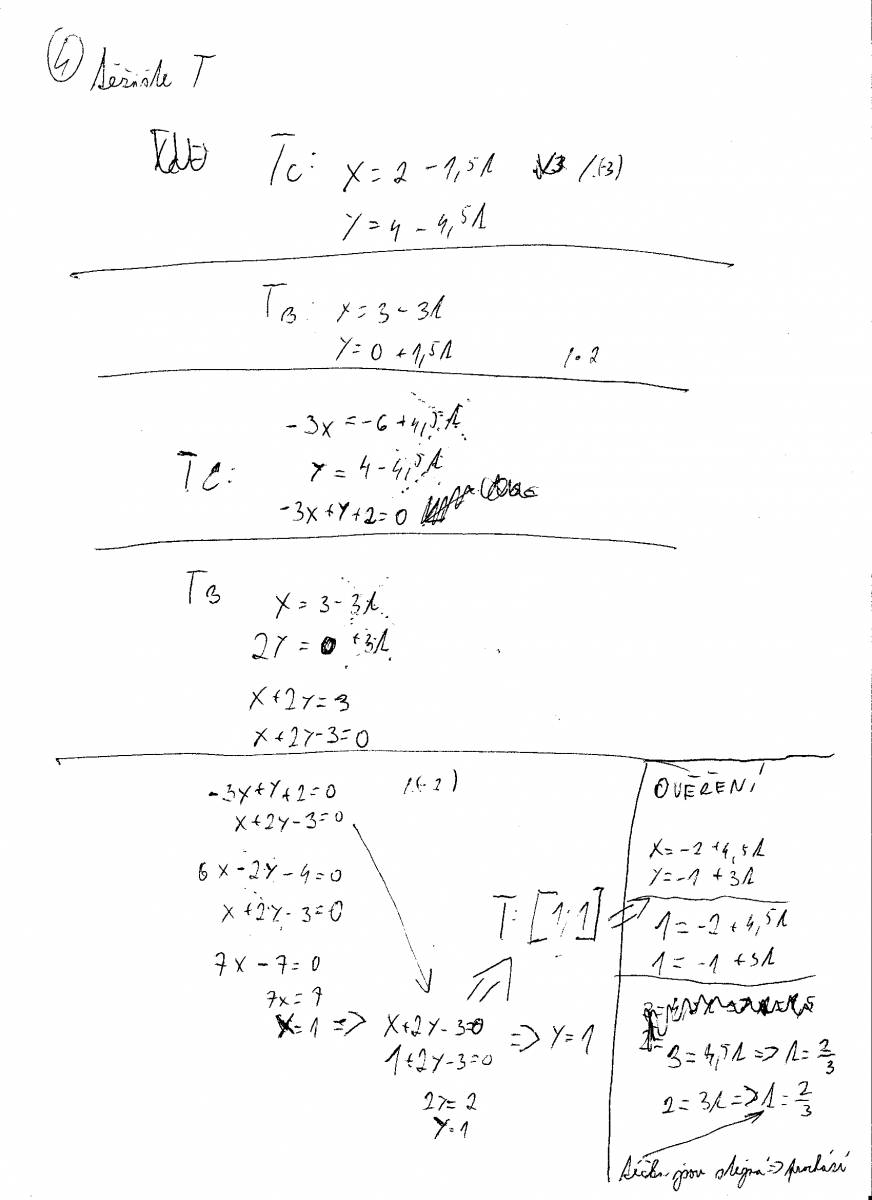 4 Těžiště T
Tc: x = 2 - 1,5s /·(-3)
y = 4 - 4,5s
TB: x = 3 - 3s
y = 0 + 1,5s /·2
-3x = -6 + 4,5s
Tc: y = 4 - 4,5s
-3x + y + 2 = 0
TB x = 3 - 3s
2y = 0 + 3s
x + 2y = 3
x + 2y - 3 = 0
-3x + y + 2 = 0 /·(-2)
x + 2y - 3 = 0
6x - 2y - 4 = 0
x + 2y - 3 = 0
7x - 7 = 0
7x = 7
x = 1 => x + 2y - 3 = 0
1 + 2y - 3 = 0 => y = 1
2y = 2
y = 1
T: [1;1] =>
OVĚŘENÍ
x = -2 + 4,5s
y = -1 + 3s
1 = -2 + 4,5s
1 = -1 + 3s
3 = 4,5s => s = 2/3
2 = 3s => s = 2/3
jsou stejná => prochází